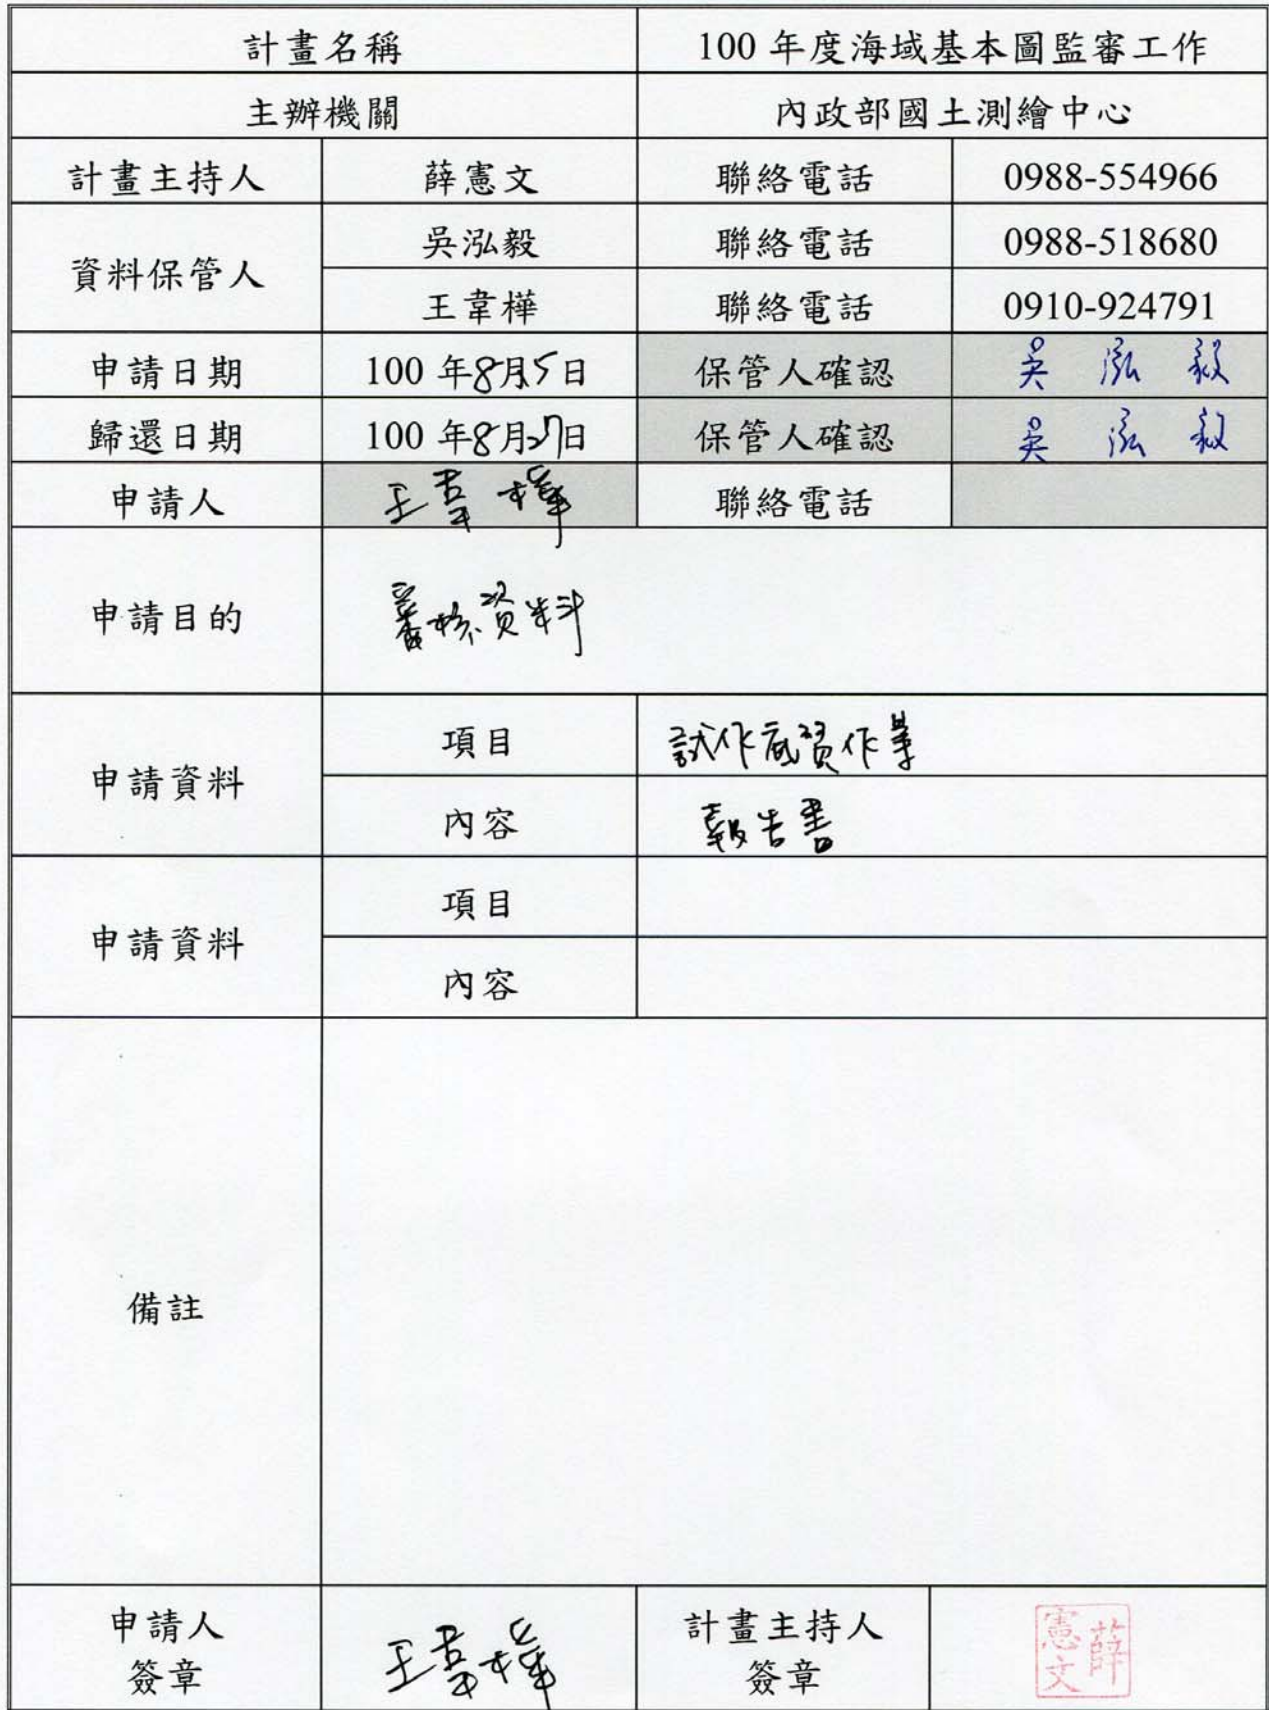 計畫名稱 100 年度海域基本圖監審工作
主辦機關 內政部國土測繪中心
計畫主持人 薛憲文 聯絡電話 0988-554966
資料保管人
吳泓毅 聯絡電話 0988-518680
王韋樺 聯絡電話 0910-924791
申請日期 100 年8月5日 保管人確認 吳泓毅
歸還日期 100 年8月27日 保管人確認 吳泓毅
申請人 王韋樺 聯絡電話
申請目的 審核資料
申請資料
項目 試作底質作業
內容 報告書
申請資料
項目
內容
備註
申請人
簽章
王韋樺
計畫主持人
簽章
薛憲文